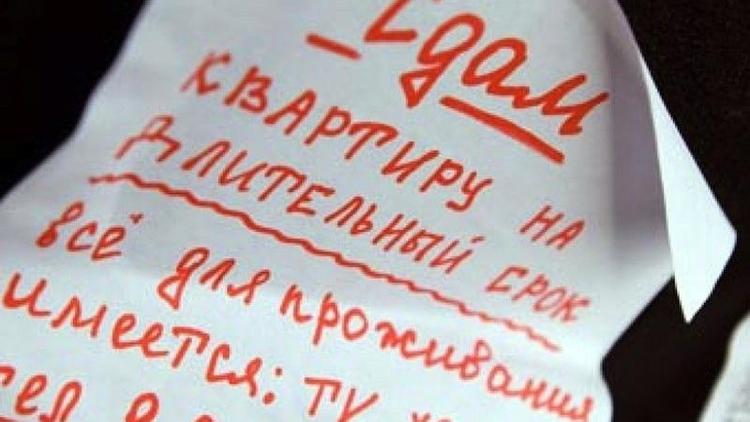 Сдам
КВАРТИРУ НА
ДЛИТЕЛЬНЫЙ СРОК
всё для проживания
имеется: ту